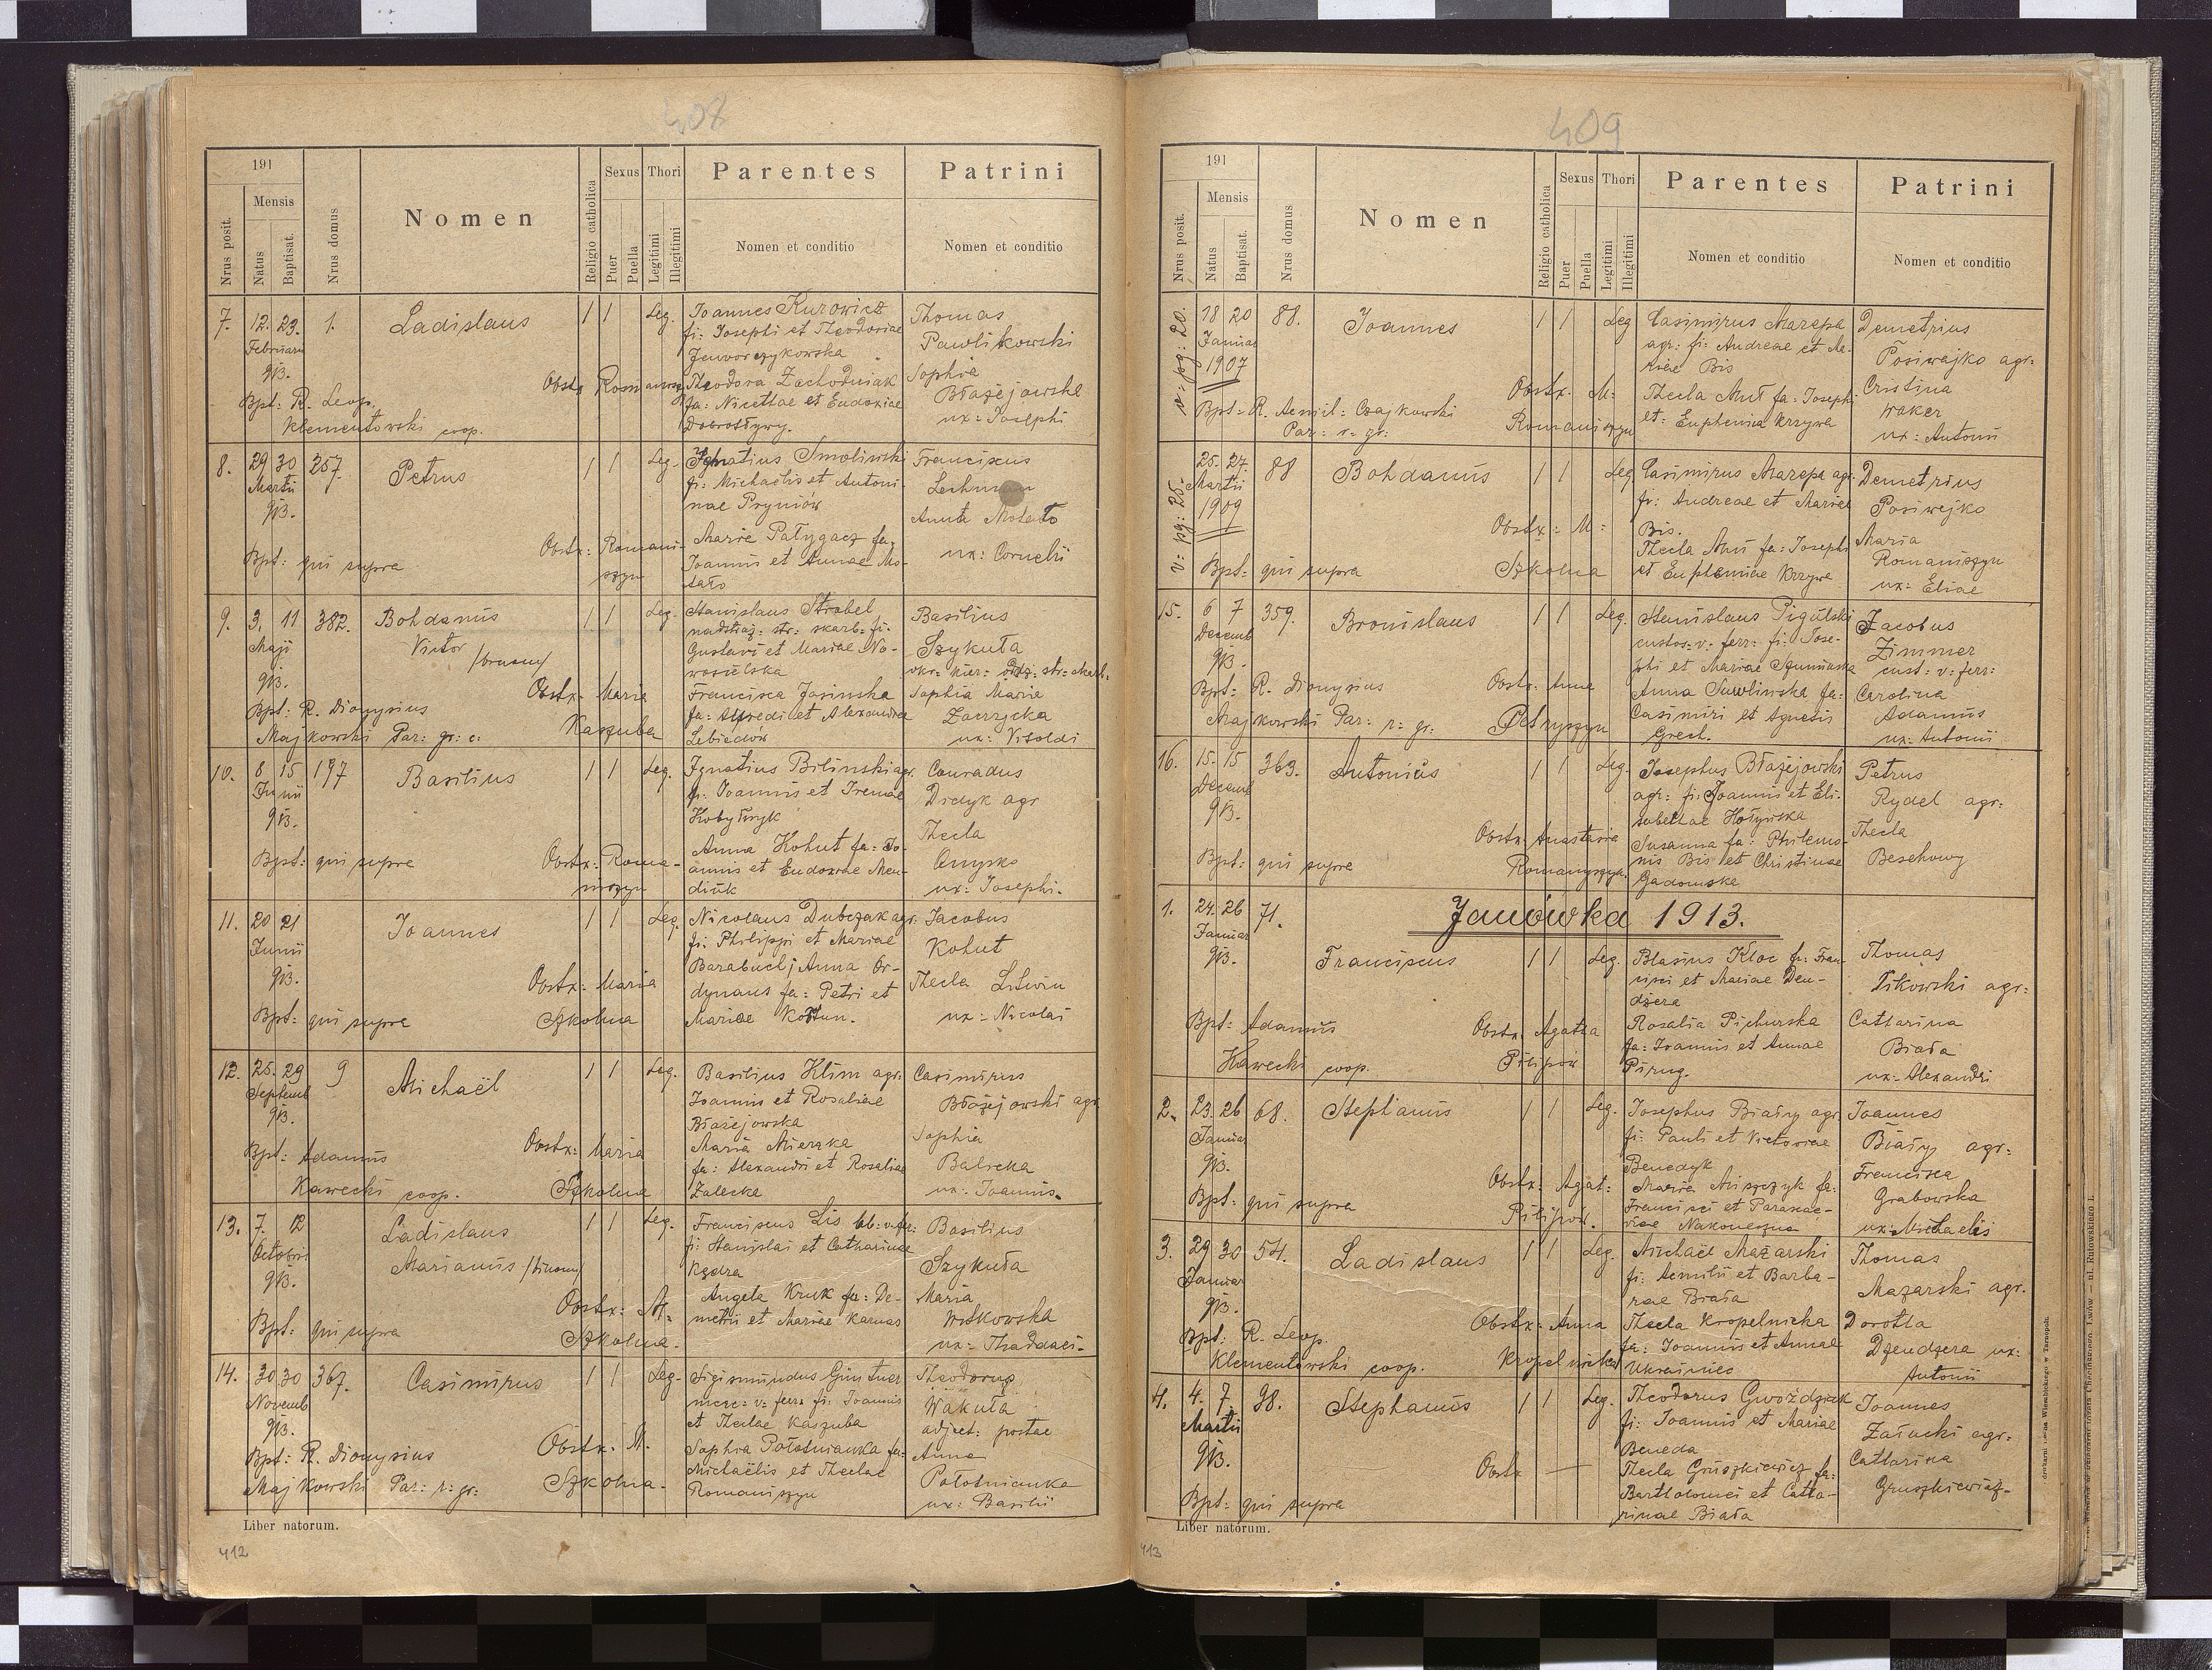 408
191
Nrus posit.
Mensis
Natus
Baptisat.
Nrus domus
Nomen
Religio catholica
Sexus
Puer
Puella
Thori
Legitimi
Illegitimi
Parentes
Nomen et conditio
Patrini
Nomen et conditio
7. 12. 23. 1. Ladislaus 1 1 Leg. Joannes Kurowicz Thomas
Februarii fi: Josephi et Theodoriae Pawlikowski
913. Jaworczykowska Sophia
Obstx Romanisz Theodora Zachodniak Błażejowska
Bpt: R. Leop. fa: Nicetae et Eudoxiae ux: Josephi
Klementowski coop. Dobrostywy.
8. 29 30 257. Petrus 1 1 Leg. Ignatius Smoliwski Franciscus
Martii fi: Michaëlis et Antoni- Lechman
913. nae Pryniów Anna Motało
Obstx: Romani- Maria Pałygacz fa. ux: Cornelii
Bpt: qui supra szyn Joannis et Annae Mo-
tało
9. 3. 11 382. Bohdanus 1 1 Leg. Stanislaus Strobel Basilius
Maji Victor nadstraż: str: skarb: fi. Szykuła
913. /binom/ Gustavi et Mariae No-
wosielska
Obstx: Maria Francisca Jasinska Sophia Maria
Bpt: R. Dionysius Kaszuba fa: Alfredi et Alexandra Zaerzycka
Majkowski Par: gr: c: Lebiedow ux: Vitoldi
10. 8 15 197 Basilius 1 1 Leg. Ignatius Bilinski agr. Conradus
Junii fi: Joannis et Irenae Didyk agr
913. Kobyłnyk Thecla
Obstx: Roma- Anna Kohut fa: Jo- Onysko
Bpt: qui supra niszyn annis et Eudoxiae Men- ux: Josephi.
diuk
11. 20 21 Joannes 1 1 Leg. Nicolaus Dubczak agr. Jacobus
Junii fi. Philippi et Mariae Kohut
913. Barabuch j Anna Or- Thecla Litwin
Obstx: Maria dynans fa: Petri et ux: Nicolai
Bpt: qui supra Szkolna Mariae Kołtun.
12. 25. 29 9 Michaël 1 1 Leg. Basilius Klim agr. Casimirus
Septemb Joannis et Rosaliae Błażejowski agr.
913. Błażejowska Sophia
Obstx: Maria Maria Mierzka Balicka
Bpt: Adamus fa: Alexandri et Rosaliae ux: Joannis.
Kawecki coop. Szkolna Zalecka
13. 7. 12 Ladislaus 1 1 Leg. Franciscus Lis Basilius
Octobris Marianus /binom/ fi: Stanislai et Catharinae Szykuła
913. Kędra Maria
Obstx: M. Angela Kruk fa: De- Witkowska
Bpt: qui supra Szkolna. metrii et Mariae Karwas ux: Thaddaei.
14. 30 30 367. Casimirus 1 1 Leg. Sigismundus Güntner Theodorus
Novemb merc: v: ferr. fi: Joannis Wakuła
913. et Theclae Kaszuba adject: postae
Obstx. M. Sophia Połotnianka fa: Anna
Bpt: R. Dionysius Michaëlis et Theclae Połotnianka
Majkowski Par: r: gr: Szkolna. Romaniszyn ux: Basilii
Liber natorum.
412
409
191
Nrus posit.
Mensis
Natus
Baptisat.
Nrus domus
Nomen
Religio catholica
Sexus
Puer
Puella
Thori
Legitimi
Illegitimi
Parentes
Nomen et conditio
Patrini
Nomen et conditio
v: pg: 20. 18 20 88. Joannes 1 1 Leg Casimirus Mazepa Demetrius
Januar agr: fi: Andreae et Ma- Posiwajko agr:
1907 riae Bis Cristina
Obstx. M: Thecla Muł fa: Josephi Waker
Bpt: R. Aemil: Czajkowski Romaniszyn et: Euphemia Krzywa ux: Antonii
Par: r: gr:
v: pg: 25. 25. 27. 88 Bohdanus 1 1 Leg Casimirus Mazepa agr. Demetrius
Martii fi: Andreae et Mariae Posiwejko
1909 Obstx: M: Bis. Maria
Thecla Muł fa: Josephi Romaniszyn
Bpt: qui supra Szkolna et Euphemiae Krzywa ux: Eliae
15. 6 7 359. Bronislaus 1 1 Leg. Stanislaus Pigulski Jacobus
Decemb custos: v. ferr: fi: Jose- Zimmer
913. phi et Mariae Szumiaska cust: v: ferr:
Bpt: R. Dionysius Obstx. Anna Anna Suwlinska fa: Carolina
Majkowski Par: r: gr: Petryszyn Casimiri et Agnetis Adamus
Grech. ux: Antonii
16. 15. 15 363. Antonius 1 1 Leg. Josephus Błażejowski Petrus
Decemb agr: fi: Joannis et Eli- Rydel agr:
913. sabethae Hołyńska Thecla
Obstx Anastasia Susanna fa: Philemo- Beschowy
Bpt: qui supra Romanyszyn. nis Bis et Christinae
Gadomska
Janówka 1913.
1. 24. 26 71.
Januar
913. Franciscus 1 1 Leg. Blasius Kloc fi: Fran- Thomas
cisci et Mariae Den- Tikowski agr:
dzera
Bpt: Adamus Obstx. Agatha Rosalia Pichurska Catharina
Kawecki coop. Pilipow fa: Joannis et Annae Biała
Pirug. ux: Alexandri
2. 23. 26 68. Stephanus 1 1 Leg. Josephus Biały agr. Joannes
Januar fi: Pauli et Victoriae Biały agr:
913. Benedyk Francisca
Obstx: Agat: Maria Miszczyk fa: Grabowska
Bpt: qui supra Pilipow. Francisci et Paraxe- ux: Michaelis
viae Nakoneczna
3. 29 30 54. Ladislaus 1 1 Leg. Michaël Mazarski Thomas
Januar fi: Aemilii et Barba- Mazarski agr.
913. rae Biała
Bpt: R. Leop. Obstx: Anna Thecla Kropelnicka Dorotha
Klementowski coop. Kropelnicka fa: Joannis et Annae Dzendzera ux:
Ukrainiec Antonii
4. 4. 7. 98. Stephanus 1 1 Leg. Theodorus Gwoździak Joannes
Martii fi: Joannis et Mariae Załucki agr.
913. Beneda Catharina
Obstx — Thecla Gruszkiewicz fa: Gruszkiewicz
Bpt: qui supra Bartholomei et Catha-
rinae Biała
Liber natorum.
413